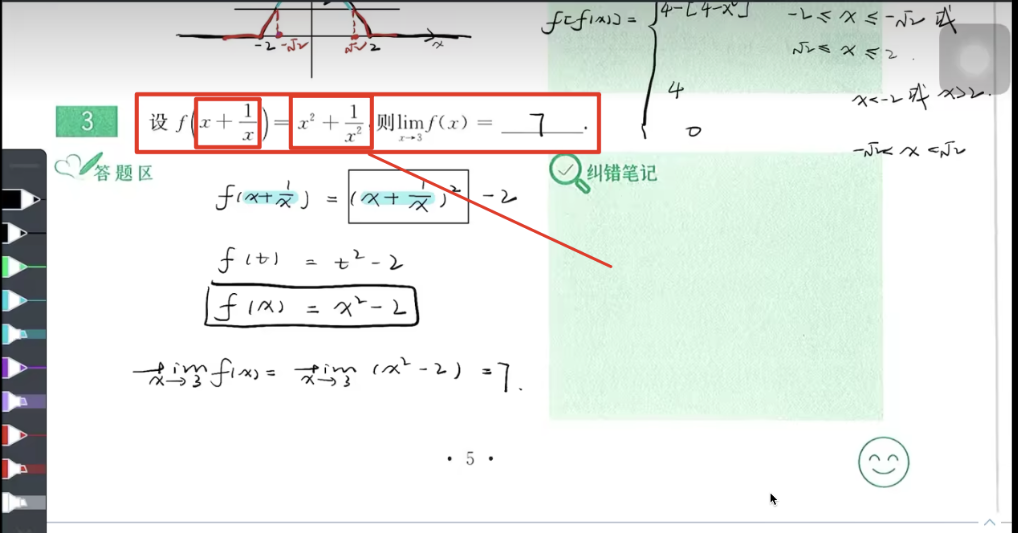 -2 -√2 √2 2 x
f[f(x)] = { 4-[4-x²] -2 ≤ x ≤ -√2 或
√2 ≤ x ≤ 2 .
4 x<-2 或 x>2.
0 -√2< x <√2
3 设 f(x + 1/x) = x² + 1/x², 则 lim x→3 f(x) = 7 .
答题区
纠错笔记
f(x+1/x) = (x+1/x)² -2
f(t) = t² -2
f(x) = x² -2
lim x→3 f(x) = lim x→3 (x² -2) = 7.
· 5 ·